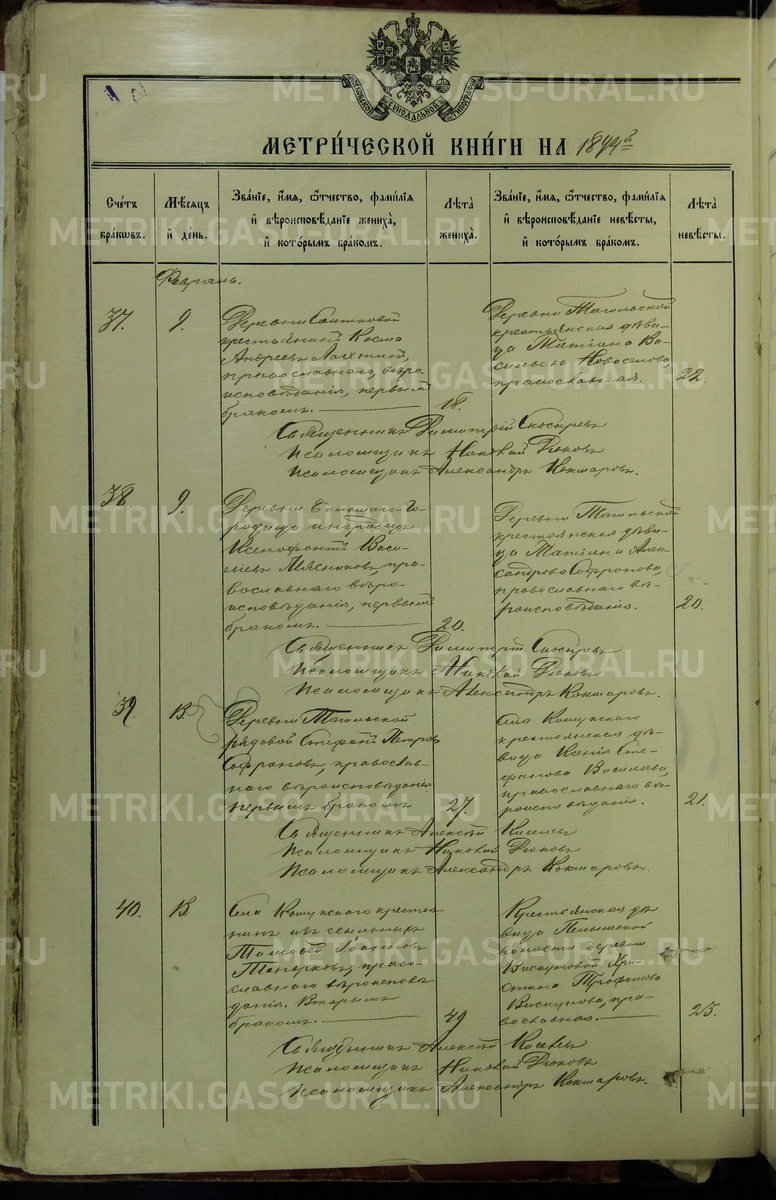 МЕТРИ́ЧЕСКОЙ КНИ́ГИ НА 1894й
Сче́тъ бра́кѡвъ.
Мѣ́сяцъ и҆ де́нь.
Зва́нїе, и҆́мѧ, ѻ҆́тчество, фами́лїѧ и҆ вѣроисповѣ́данїе жениха̀, и҆ кото́рымъ бра́комъ.
Лѣ́та жениха̀.
Зва́нїе, и҆́мѧ, ѻ҆́тчество, фами́лїѧ и҆ вѣроисповѣ́данїе невѣ́сты, и҆ кото́рымъ бра́комъ.
Лѣ́та невѣ́сты.
Февраль.
37.
9.
Деревни
крестьянинъ Косма
Андреевъ
православнаго, вѣро-
исповѣданія, первымъ
бракомъ.
18.
Деревни Тагильской
крестьянская дѣви-
ца Татіана Ва-
сильева Новоселова,
православная.
22.
Священникъ Димитрій
Псаломщикъ Николай
Псаломщикъ Александръ Кокшаровъ.
38.
9.
Деревни Большаго-Го-
родища инородецъ
Ксенофонтъ Васи-
лiевъ Мясниковъ, пра-
вославнаго вѣро-
исповѣданія, первымъ
бракомъ.
20.
Деревни Тагильской
крестьянская дѣви-
ца Татіана Алек-
сандрова Софронова,
православнаго вѣ-
роисповѣданія.
20.
Священникъ Димитрій
Псаломщикъ Николай
Псаломщикъ Александръ Кокшаровъ.
39.
13.
Деревни Тагильской
рядовой Стефанъ Петровъ
Софроновъ, православ-
наго вѣроисповѣданія
первымъ бракомъ
27.
Села Кошукскаго
крестьянская дѣ-
вица Ксенія Сте-
фанова Васильева,
православнаго вѣ-
роисповѣданія.
21.
Священникъ Алексѣй Киселевъ
Псаломщикъ Николай
Псаломщикъ Александръ Кокшаровъ.
40.
13.
Села Кошукскаго крестья-
нинъ изъ ссыльныхъ
Тимофей Іоанновъ
право-
славнаго вѣроисповѣ-
данія. Вторымъ
бракомъ.
49
Крестьянская дѣ-
вица Пелымской
волости деревни
Вискуновой Хри-
стина Трофимова
Вискунова, пра-
вославная.
25.
Священникъ Алексѣй Киселевъ
Псаломщикъ Николай
Псаломщикъ Александръ Кокшаровъ.
METRIKI.GASO-URAL.RU